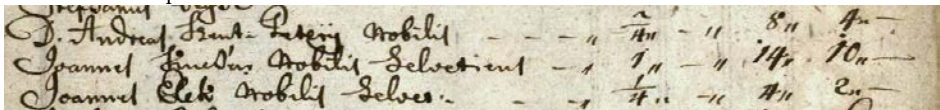 Stephanus
D. Andreas Szent-Peterij Nobilis - - - „ 2/4 „ - „ 8 „ 4 „ -
Joannes Nobilis Helveticus - „ 1 „ - „ 14 „ 10 „ -
Joannes Elek Nobilis Helvet: - - „ 1/4 „ - „ 4 „ 2 „ -